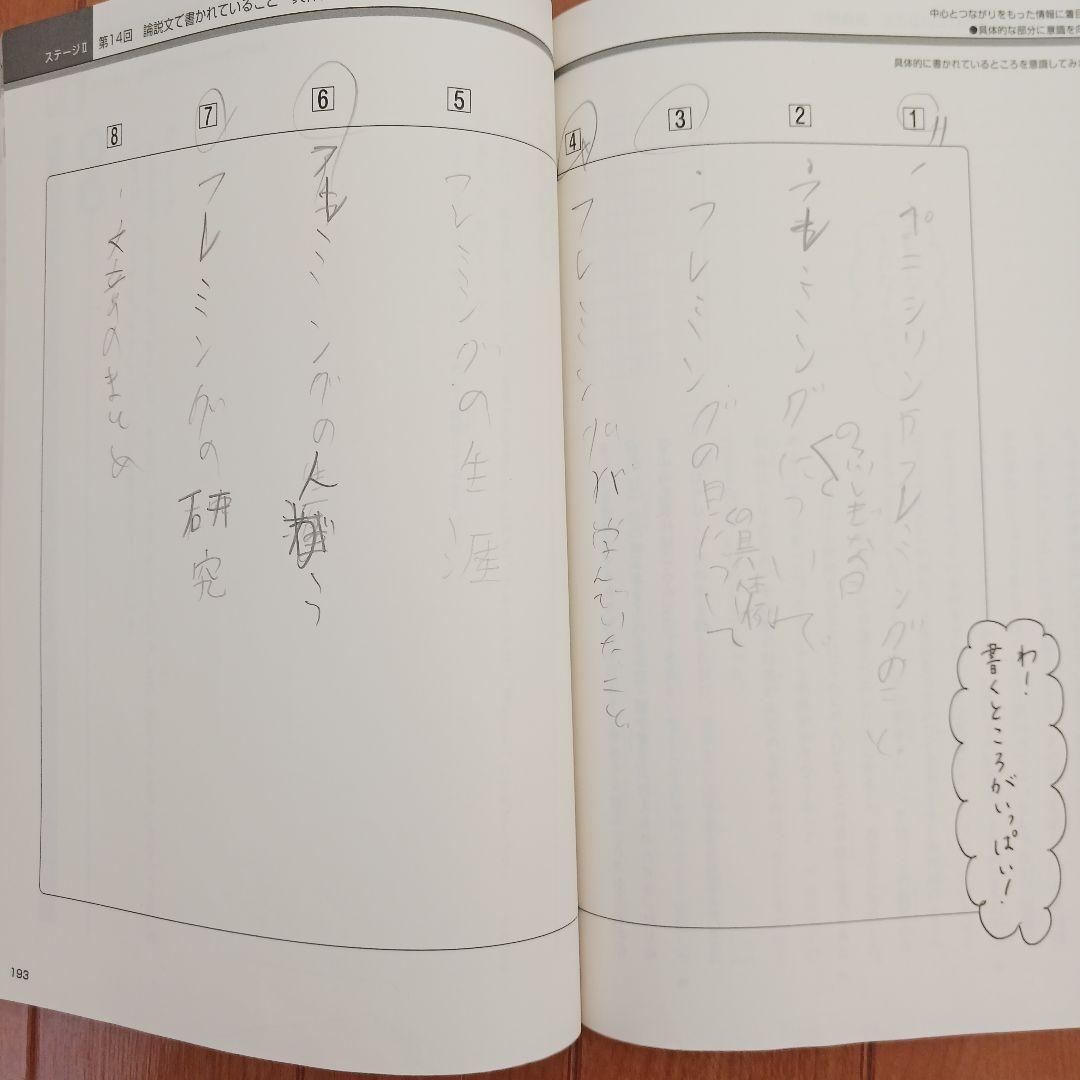 中心とつながりをもった情報に着目
●具体的な部分に意識を向
具体的に書かれているところを意識してみ
1
・ペニシリンがフレミングのこと
2
・フレミングについて
3
・フレミングの日について
の具体例
4
フレミングが学んでいたこと
わ!
書くところがいっぱい!
ステージⅡ 第14回 論説文で書かれていること
5
フレミングの生涯
6
フレミングの人
7
フレミングの研究
8
・文章のまとめ
193